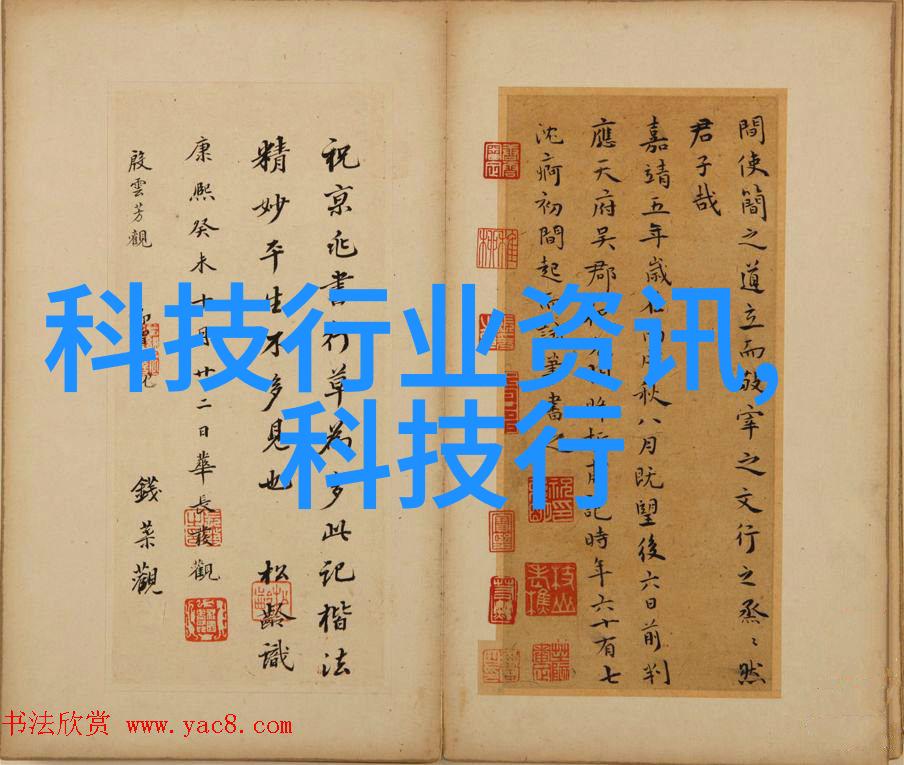 間使簡之道立而敘宰之文行之烝〻然
君子哉
嘉靖五年歲在丙戌秋八月既望後六日前判
應天府吳郡
時年六十有七
沈痾初間起
筆書之
祝京兆書行草為多此記楷法
精妙平生不多見也 松齡識
康熙癸未十月廿二日華長發觀
殷雲芳觀
錢荣觀
科技行业资讯,
科技行
书法欣赏 www.yac8.com